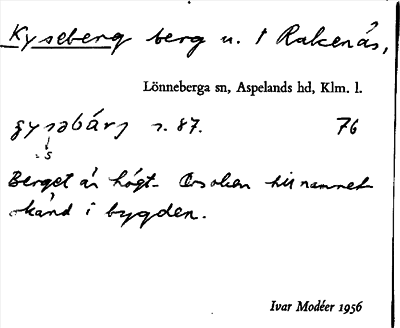 Kyseberg berg u. t Rakenäs,
Lönneberga sn, Aspelands hd, Klm. l.
s. 87. 76
s
Berget är högt. Orsaken till namnet
okänd i bygden.
Ivar Modéer 1956